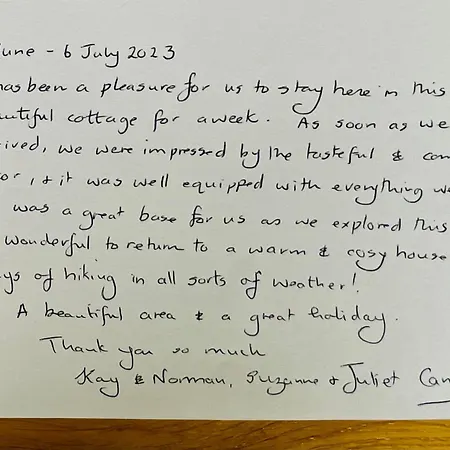 une - 6 July 2023
has been a pleasure for us to stay here in this
utiful cottage for a week. As soon as we
ived, we were impressed by the tasteful & com
or, & it was well equipped with everything we
was a great base for us as we explored this
wonderful to return to a warm & cosy house
ys of hiking in all sorts of weather!
A beautiful area & a great holiday.
Thank you so much
Kay & Norman, Suzanne & Juliet Can